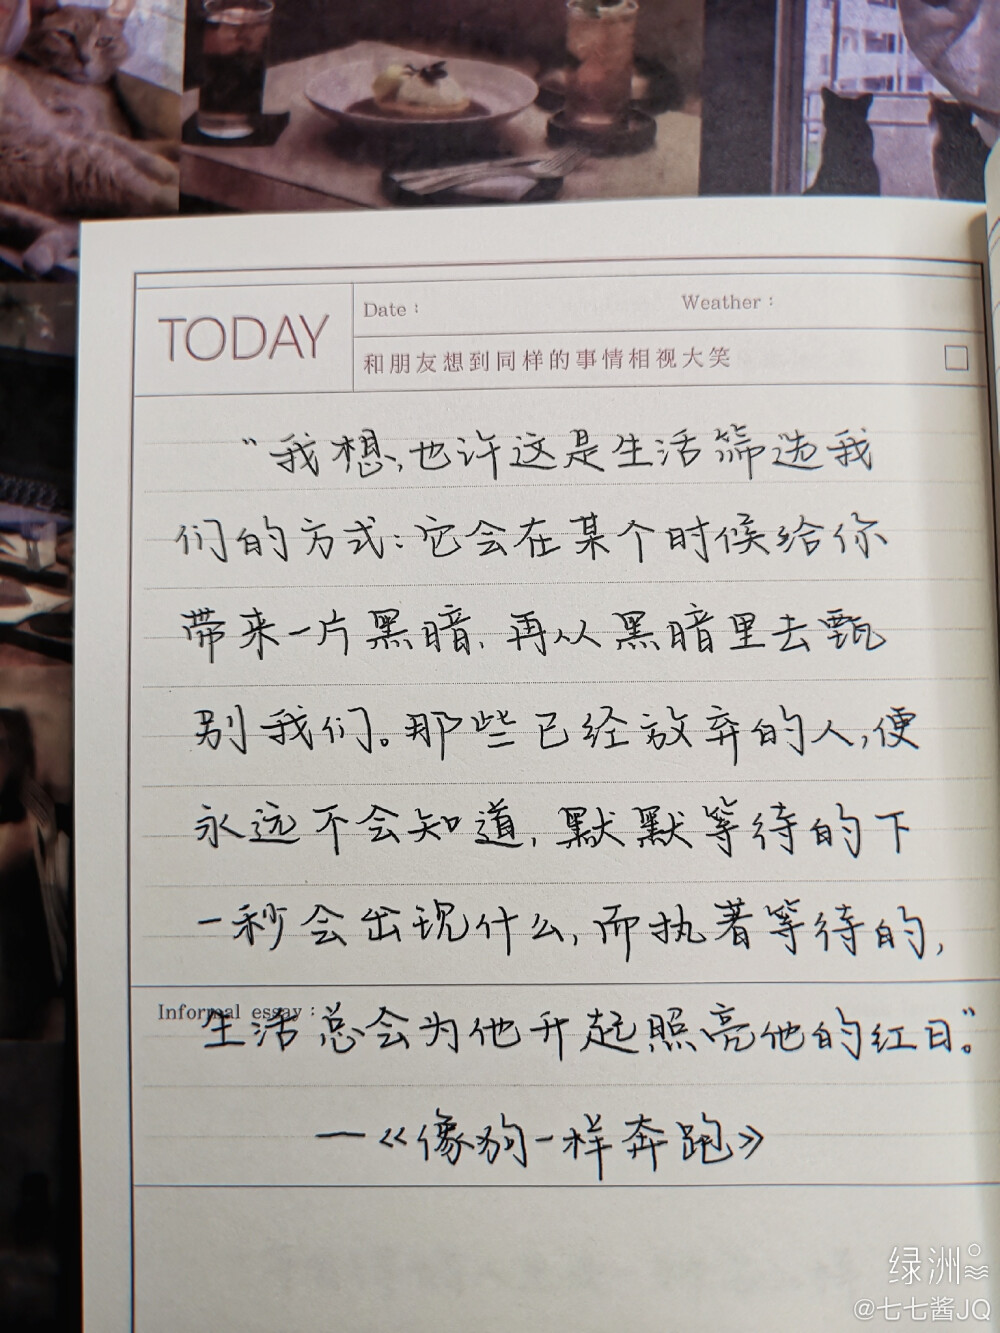 TODAY
Date：
Weather：
和朋友想到同样的事情相视大笑
“我想,也许这是生活筛选我
们的方式：它会在某个时候给你
带来一片黑暗,再从黑暗里去甄
别我们。那些已经放弃的人,便
永远不会知道,默默等待的下
一秒会出现什么,而执着等待的,
Informal essay：
生活总会为他升起照亮他的红日。”
—《像狗一样奔跑》
绿洲
@七七酱JQ